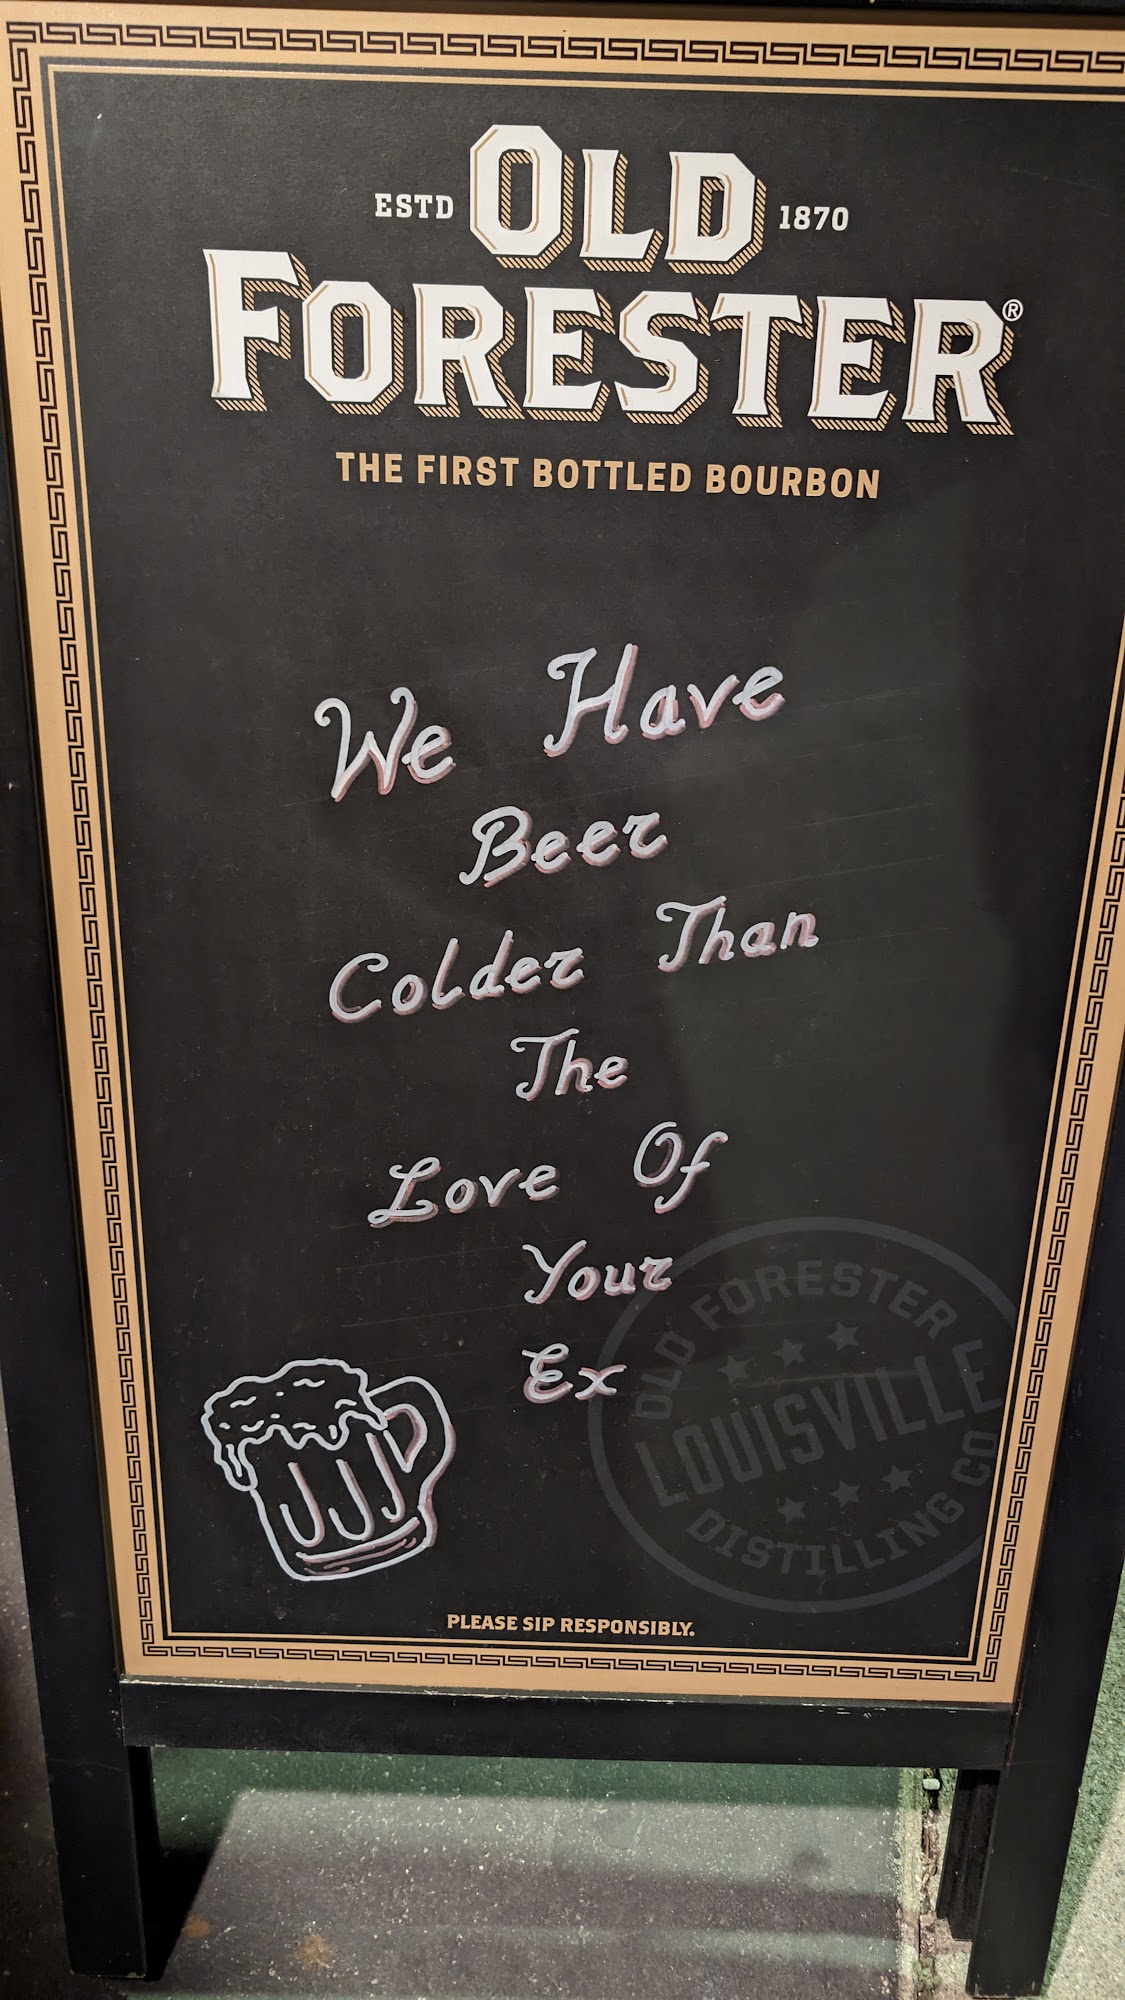 ESTD OLD 1870
FORESTER®
THE FIRST BOTTLED BOURBON
We Have
Beer
Colder Than
The
Love Of
Your
Ex
OLD FORESTER
LOUISVILLE
DISTILLING CO
PLEASE SIP RESPONSIBLY.